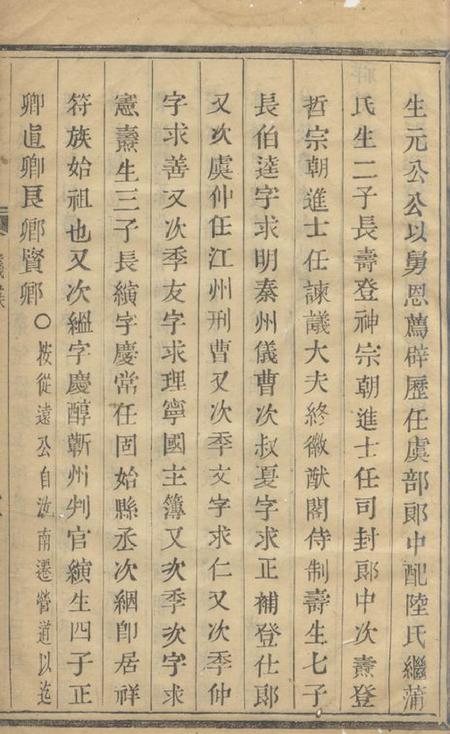 生元公公以舅恩薦辟歷任虞部郎中配陸氏繼蒲
氏生二子長壽登神宗朝進士任司封郎中次燾登
哲宗朝進士任諫議大夫終徽猷閣侍制壽生七子
長伯逵字求明秦州儀曹次叔夏字求正補登仕郎
又次虞仲任江州刑曹又次季文字求仁又次季仲
字求善又次季友字求理寧國主簿又次季次字求
憲燾生三子長縯字慶常任固始縣丞次絪卽居祥
符族始祖也又次縕字慶醇蘄州判官縯生四子正
卿直卿良卿賢卿○按從遠公自汝南遷營道以迄